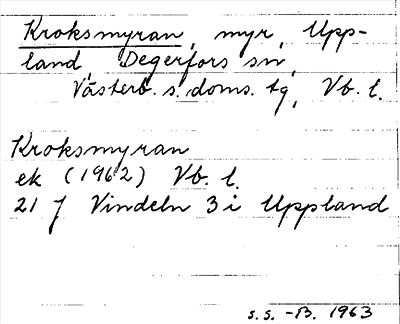 Kroksmyran, myr, Upp-
land, Degerfors sn,
Västerb. s. doms. tg, Vb. l.
Kroksmyran
ek (1962) Vb. l.
21 J Vindeln 3 i Uppland
s.s. -B. 1963